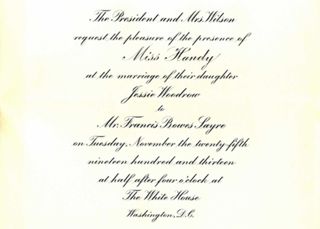 The President and Mrs. Wilson
request the pleasure of the presence of
Miss Handy
at the marriage of their daughter
Jessie Woodrow
to
Mr. Francis Bowes Sayre
on Tuesday, November the twenty-fifth
nineteen hundred and thirteen
at half after four o'clock at
The White House
Washington, D.C.